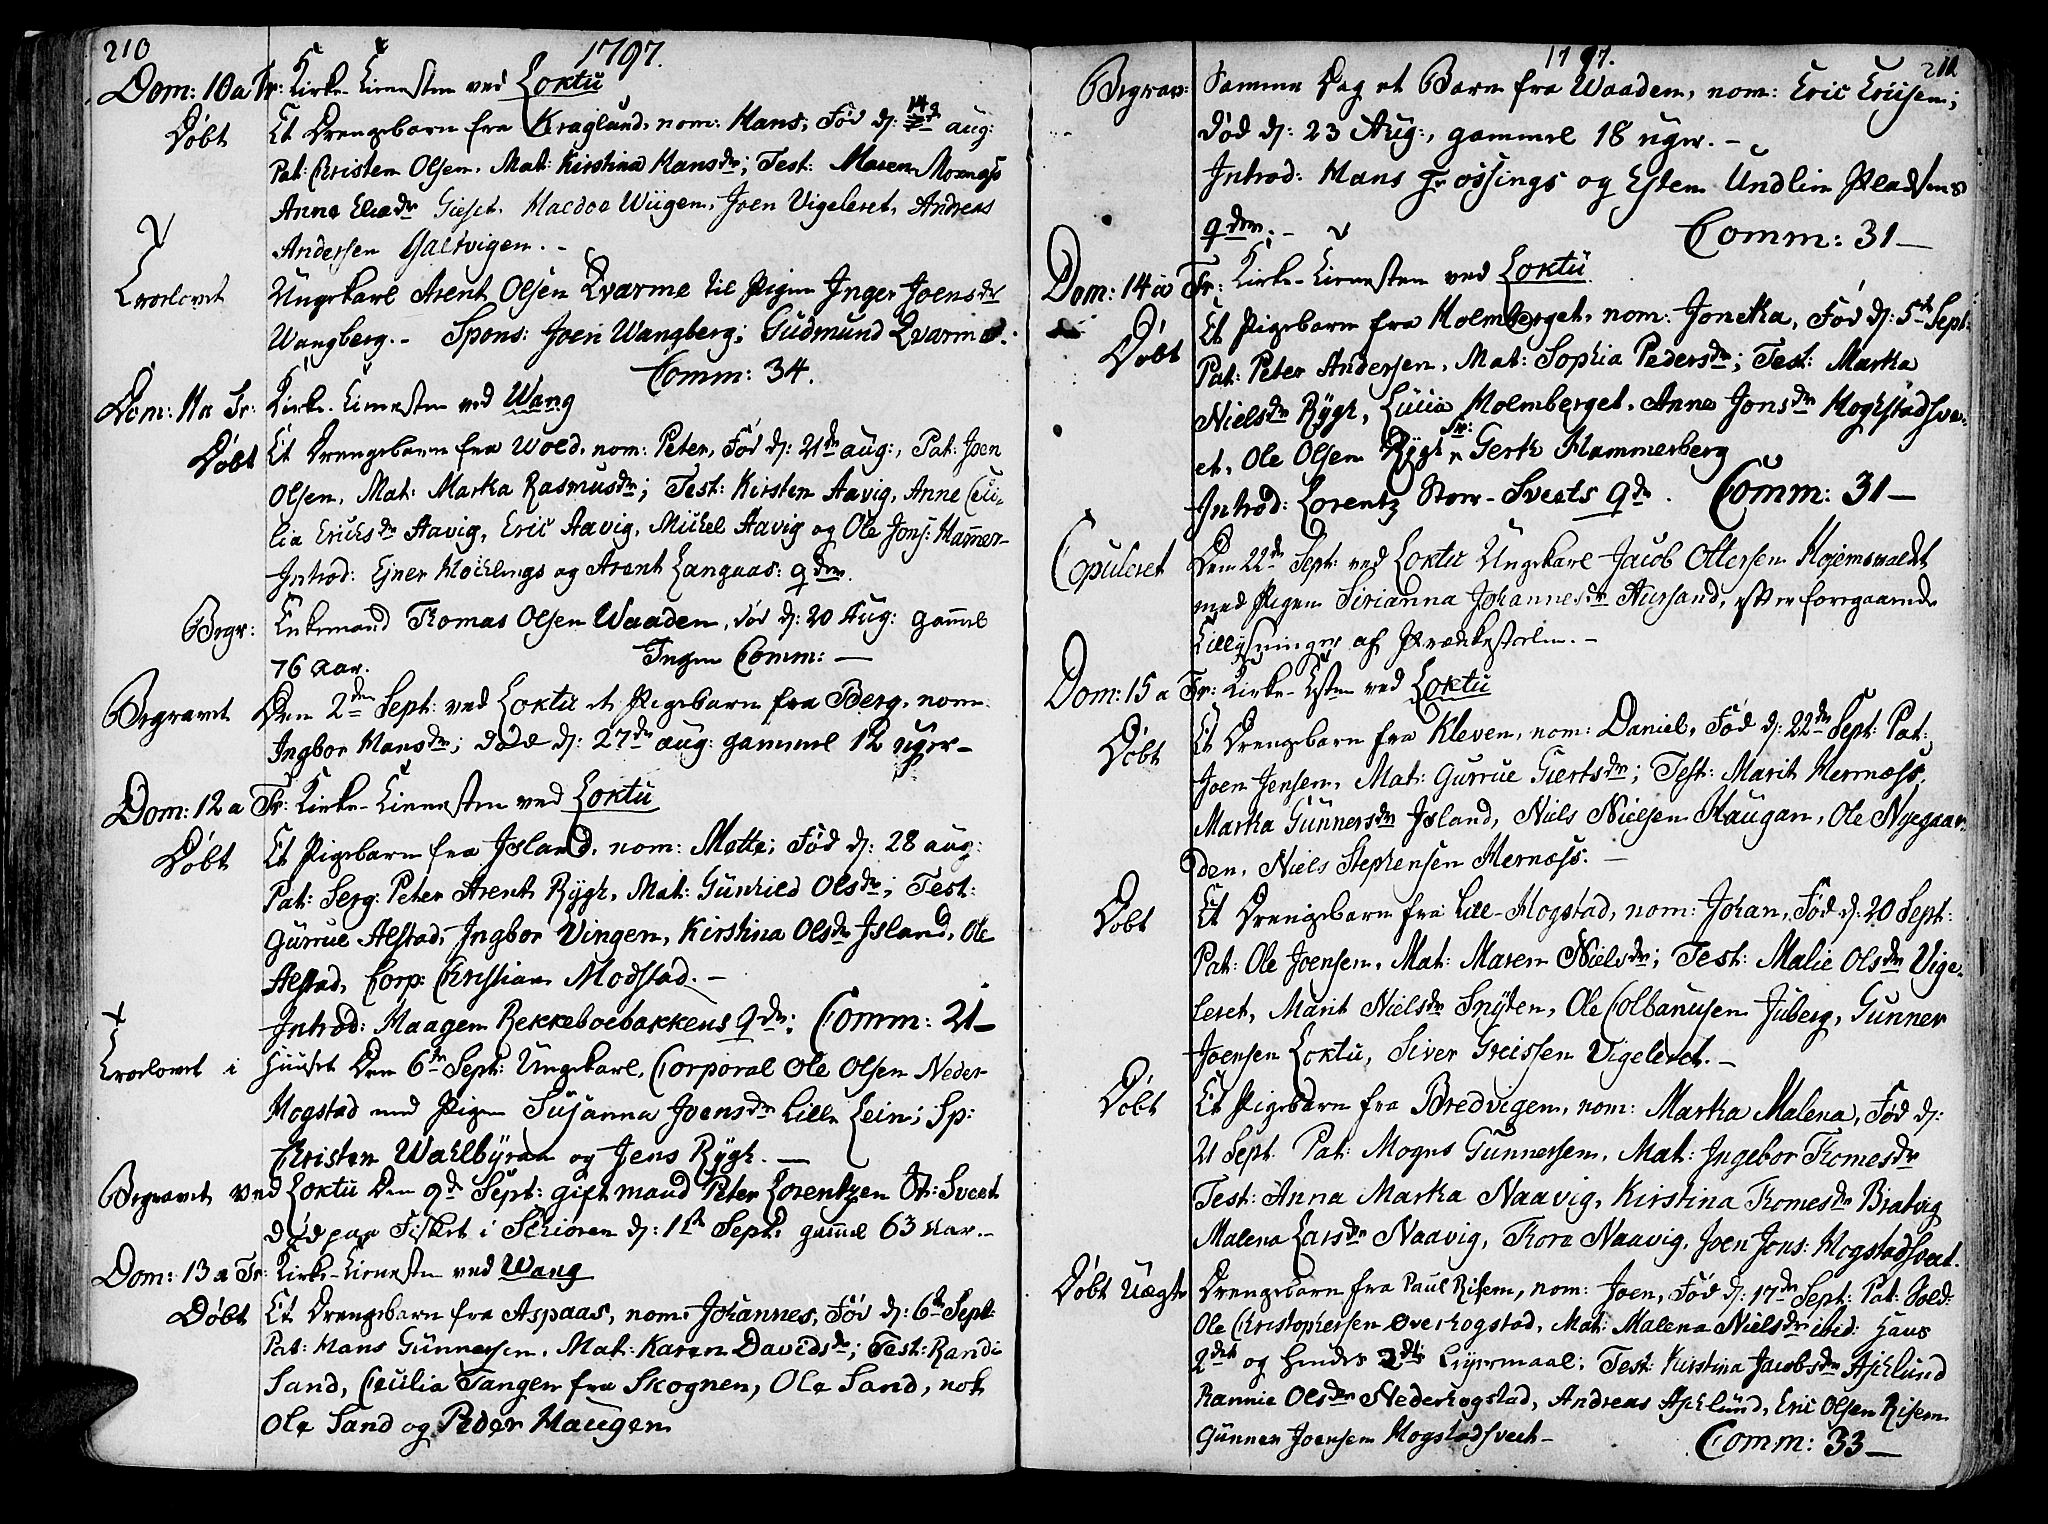 210
1797.
Dom: 10 a Tr: Kirke-Tienesten ved Loktu
Døbt Et Drengebarn fra Kraglund, nom: Hans, Fød d: 14de aug:
Pat: Christen Olsen, Mat: Kirstina Hansdr; Test: Maren Moxnæss
Anne Gieset, Macdoe Wiigen, Joen Vigeleret, Andreas
Andersen Galtvigen. -
Trolovet Ungekarl Arent Olsen Qvarme til Pigen Inger Joensdr
Wangberg. - Spons: Joen Wangberg; Gudmund Qvarme.
Comm: 34.
Dom: 11 a Tr: Kirke-Tienesten ved Wang
Døbt Et Drengebarn fra Wold, nom: Peter, Fød d: 21de aug:, Pat: Joen
Olsen, Mat: Marka Rasmusdr; Test: Kirsten Aavig, Anne Ceci-
lia Ericksdr Aavig, Eric Aavig, Mickel Aavig og Ole Jons: Hamer-
Introd: Ejner Høcklings og Arent Langaas: qdr.
Begr: Enkemand Thomas Olsen Waaden, død d: 20 Aug: gamel
76 aar. Ingen Comm: -
Begravet Den 2den Sept: ved Loktu et Pigebarn fra Berg, nom:
Ingbor Hansdr; døde d: 27de aug: gammel 12 uger -
Dom: 12 a Tr: Kirke-Tienesten ved Loktu
Døbt Et Pigebarn fra Island, nom: Mette; Fød d: 28 aug:
Pat: Serg: Peter Arent Rygh, Mat: Gunhild Olsdr; Test:
Gurrue Alstad, Ingbor Vingen, Kirstina Olsdr Island, Ole
Alstad, Corp: Christian Modstad. -
Introd: Haagen Rekkeboebakkens qdr; Comm: 21 -
Trolovet i Huuset Den 6te Sept: Ungekarl, Corporal Ole Olsen Neder
Hogstad med Pigen Susanna Joensdr Lille Lein; Sp:
Christen Wahlbyraa og Jens Rygh. -
Begravet ved Loktu Den 9de Sept: gift mand Peter Lorentzen St: Sveet
død paa Fisket i Skioren d: 1ste Sept: gamel 63 aar. -
Dom: 13 a Tr: Kirke-Tienesten ved Wang
Døbt Et Drengebarn fra Aspaas, nom: Johannes, Fød d: 6te Sept:
Pat: Hans Gunnersen, Mat: Karen Davidsdr; Test: Randi
Sand, Cecilia Tangen fra Skognen, Ole Sand, nok
Ole Sand og Peder Haugen
1797.
211
Begrav: Samme Dag et Barn fra Waaden, nom: Eric Ericsen;
død d: 23 Aug:, gammel 18 uger. -
Introd: Hans Frossings og Esten Undlin Pladsens
qdrr. - Comm: 31 -
Dom: 14 a Tr: Kirke-Tienesten ved Loktu
Døbt Et Pigebarn fra Holmberget, nom: Jonetka, Fød d: 5te Sept:
Pat: Peter Andersen, Mat: Sophia Pedersdr; Test: Marka
Nielsdr Rygh, Lucia Holmberget, Anne Jonsdr Hogstadsve-
et, Ole Olsen Rygh, Gerth Hammerberg
Introd: Lorentz Stor-Sveets qdr. Comm: 31 -
Copuleret Den 22de Sept: ved Loktu Ungekarl Jacob Ottersen Hojemsvaldt
med Pigen Sirianna Johannesdr Aursand, efter foregaaende
Tillysninger af Prædikestolen. -
Dom: 15 a Tr: Kirke-Tsten ved Loktu
Døbt Et Drengebarn fra Kleven, nom: Daniel, Fød d: 22de Sept: Pat:
Joen Jensen, Mat: Gurrue Giertsdr; Test: Marit Hernæss,
Marka Gunnersdr Island, Niels Nielsen Haugan, Ole Nyegaar-
den, Niels Stephensen Hernæss. -
Døbt Et Drengebarn fra Lill-Hogstad, nom: Johan, Fød d: 20 Sept:
Pat: Ole Joensen, Mat: Maren Nielsdr; Test: Malie Olsdr Vige-
leret, Marit Nielsdr Snyten, Ole Colbanusen Juberg, Gunner
Joensen Loktu, Siver Greissen Vigeleret. -
Døbt Et Pigebarn fra Bredvigen, nom: Marka Malena, Fød d:
21 Sept: Pat: Mogns Gunnersen, Mat: Ingebor Thomesdr
Test: Anna Marka Naavig, Kirstina Thomesdr Bratvig
Malena Larsdr Naavig, Thore Naavig, Joen Jons: Hogstadsveet.
Døbt Uægte Drengebarn fra Paul Risem, nom: Joen, Fød d: 17de Sept: Pat: Sold:
Ole Christophersen Overhogstad, Mat: Malena Nielsdr ibid: hans
2det og hendes 2det Leyermaal; Test: Kirstina Jacobsdr Asklund
Rannie Olsdr Nederhogstad, Andreas Asklund, Eric Olsen Risem
Gunner Joensen Hogstadsveet - Comm: 33 -